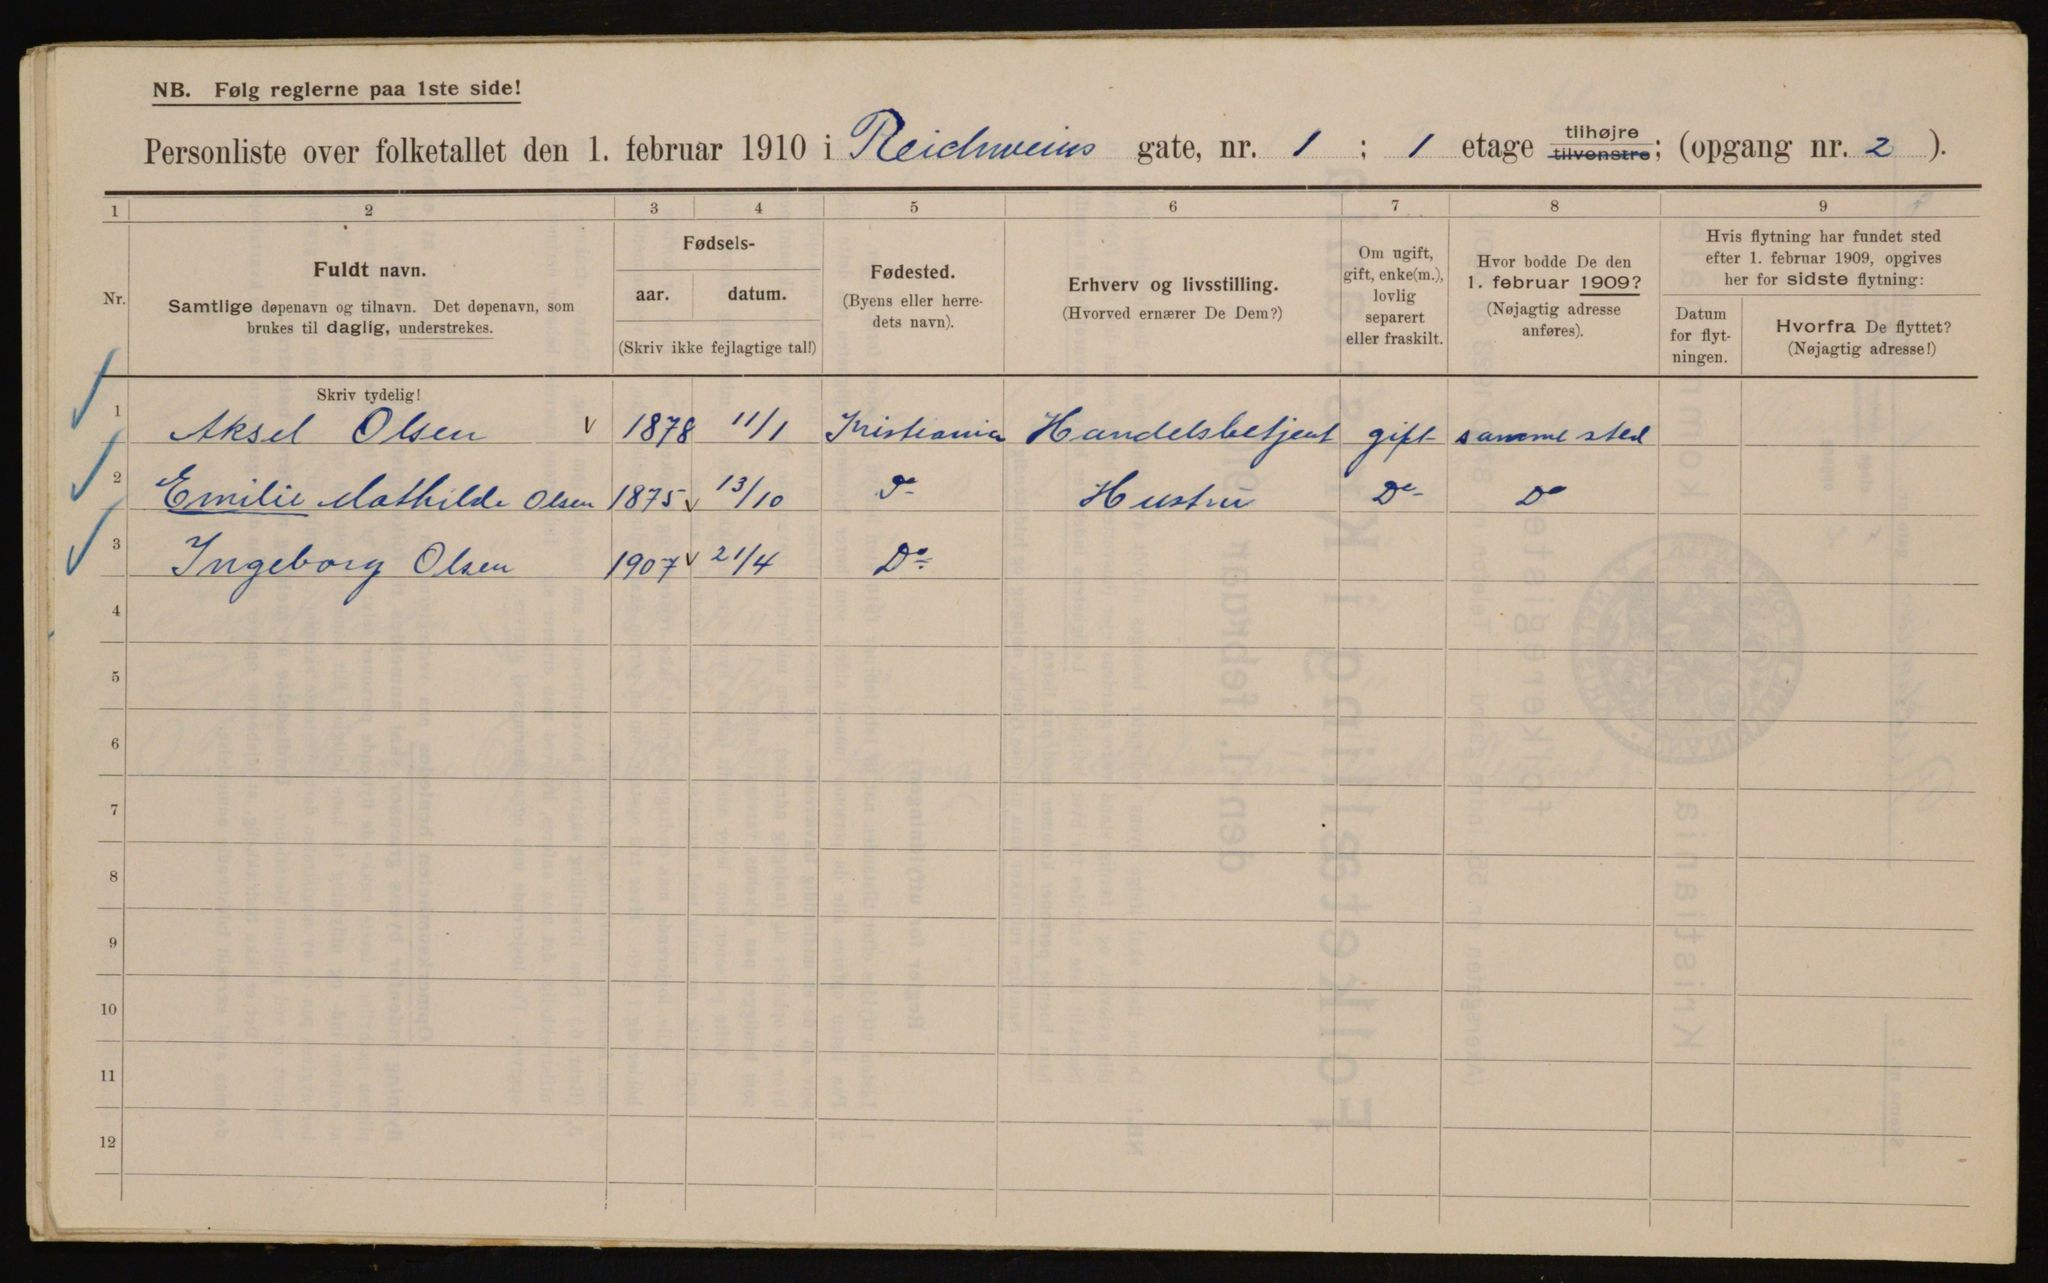 NB. Følg reglerne paa 1ste side!
Personliste over folketallet den 1. februar 1910 i Reichweins gate, nr. 1 ; 1 etage tilhøjre tilvenstre; (opgang nr. 2 ).
1 2 3 4 5 6 7 8 9
Nr.
Fuldt navn.
Samtlige døpenavn og tilnavn. Det døpenavn, som
brukes til daglig, understrekes.
Fødsels-
aar. datum.
(Skriv ikke fejlagtige tal!)
Fødested.
(Byens eller herre-
dets navn).
Erhverv og livsstilling.
(Hvorved ernærer De Dem?)
Om ugift,
gift, enke(m.),
lovlig
separert
eller fraskilt.
Hvor bodde De den
1. februar 1909?
(Nøjagtig adresse
anføres).
Hvis flytning har fundet sted
efter 1. februar 1909, opgives
her for sidste flytning:
Datum
for flyt-
ningen.
Hvorfra De flyttet?
(Nøjagtig adresse!)
Skriv tydelig!
1 Aksel Olsen v 1878 11/1 Kristiania Handelsbetjent gift samme sted
2 Emilie Mathilde Olsen 1875 v 13/10 Do Hustru Do Do
3 Ingeborg Olsen 1907 v 21/4 Do
4
5
6
7
8
9
10
11
12